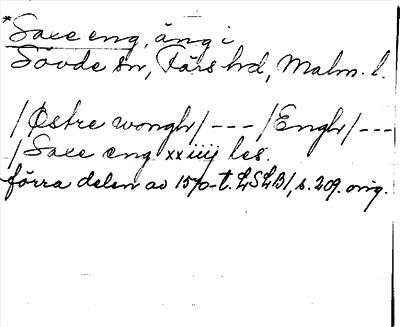 *Saxe eng, äng i
Sövde sn, Färs hd, Malm. l.
/Østre wongh/ --- /Engh/ ---
/Saxe eng xxiiij les.
förra delen av 1570-t. LSLB1, s. 209. orig.